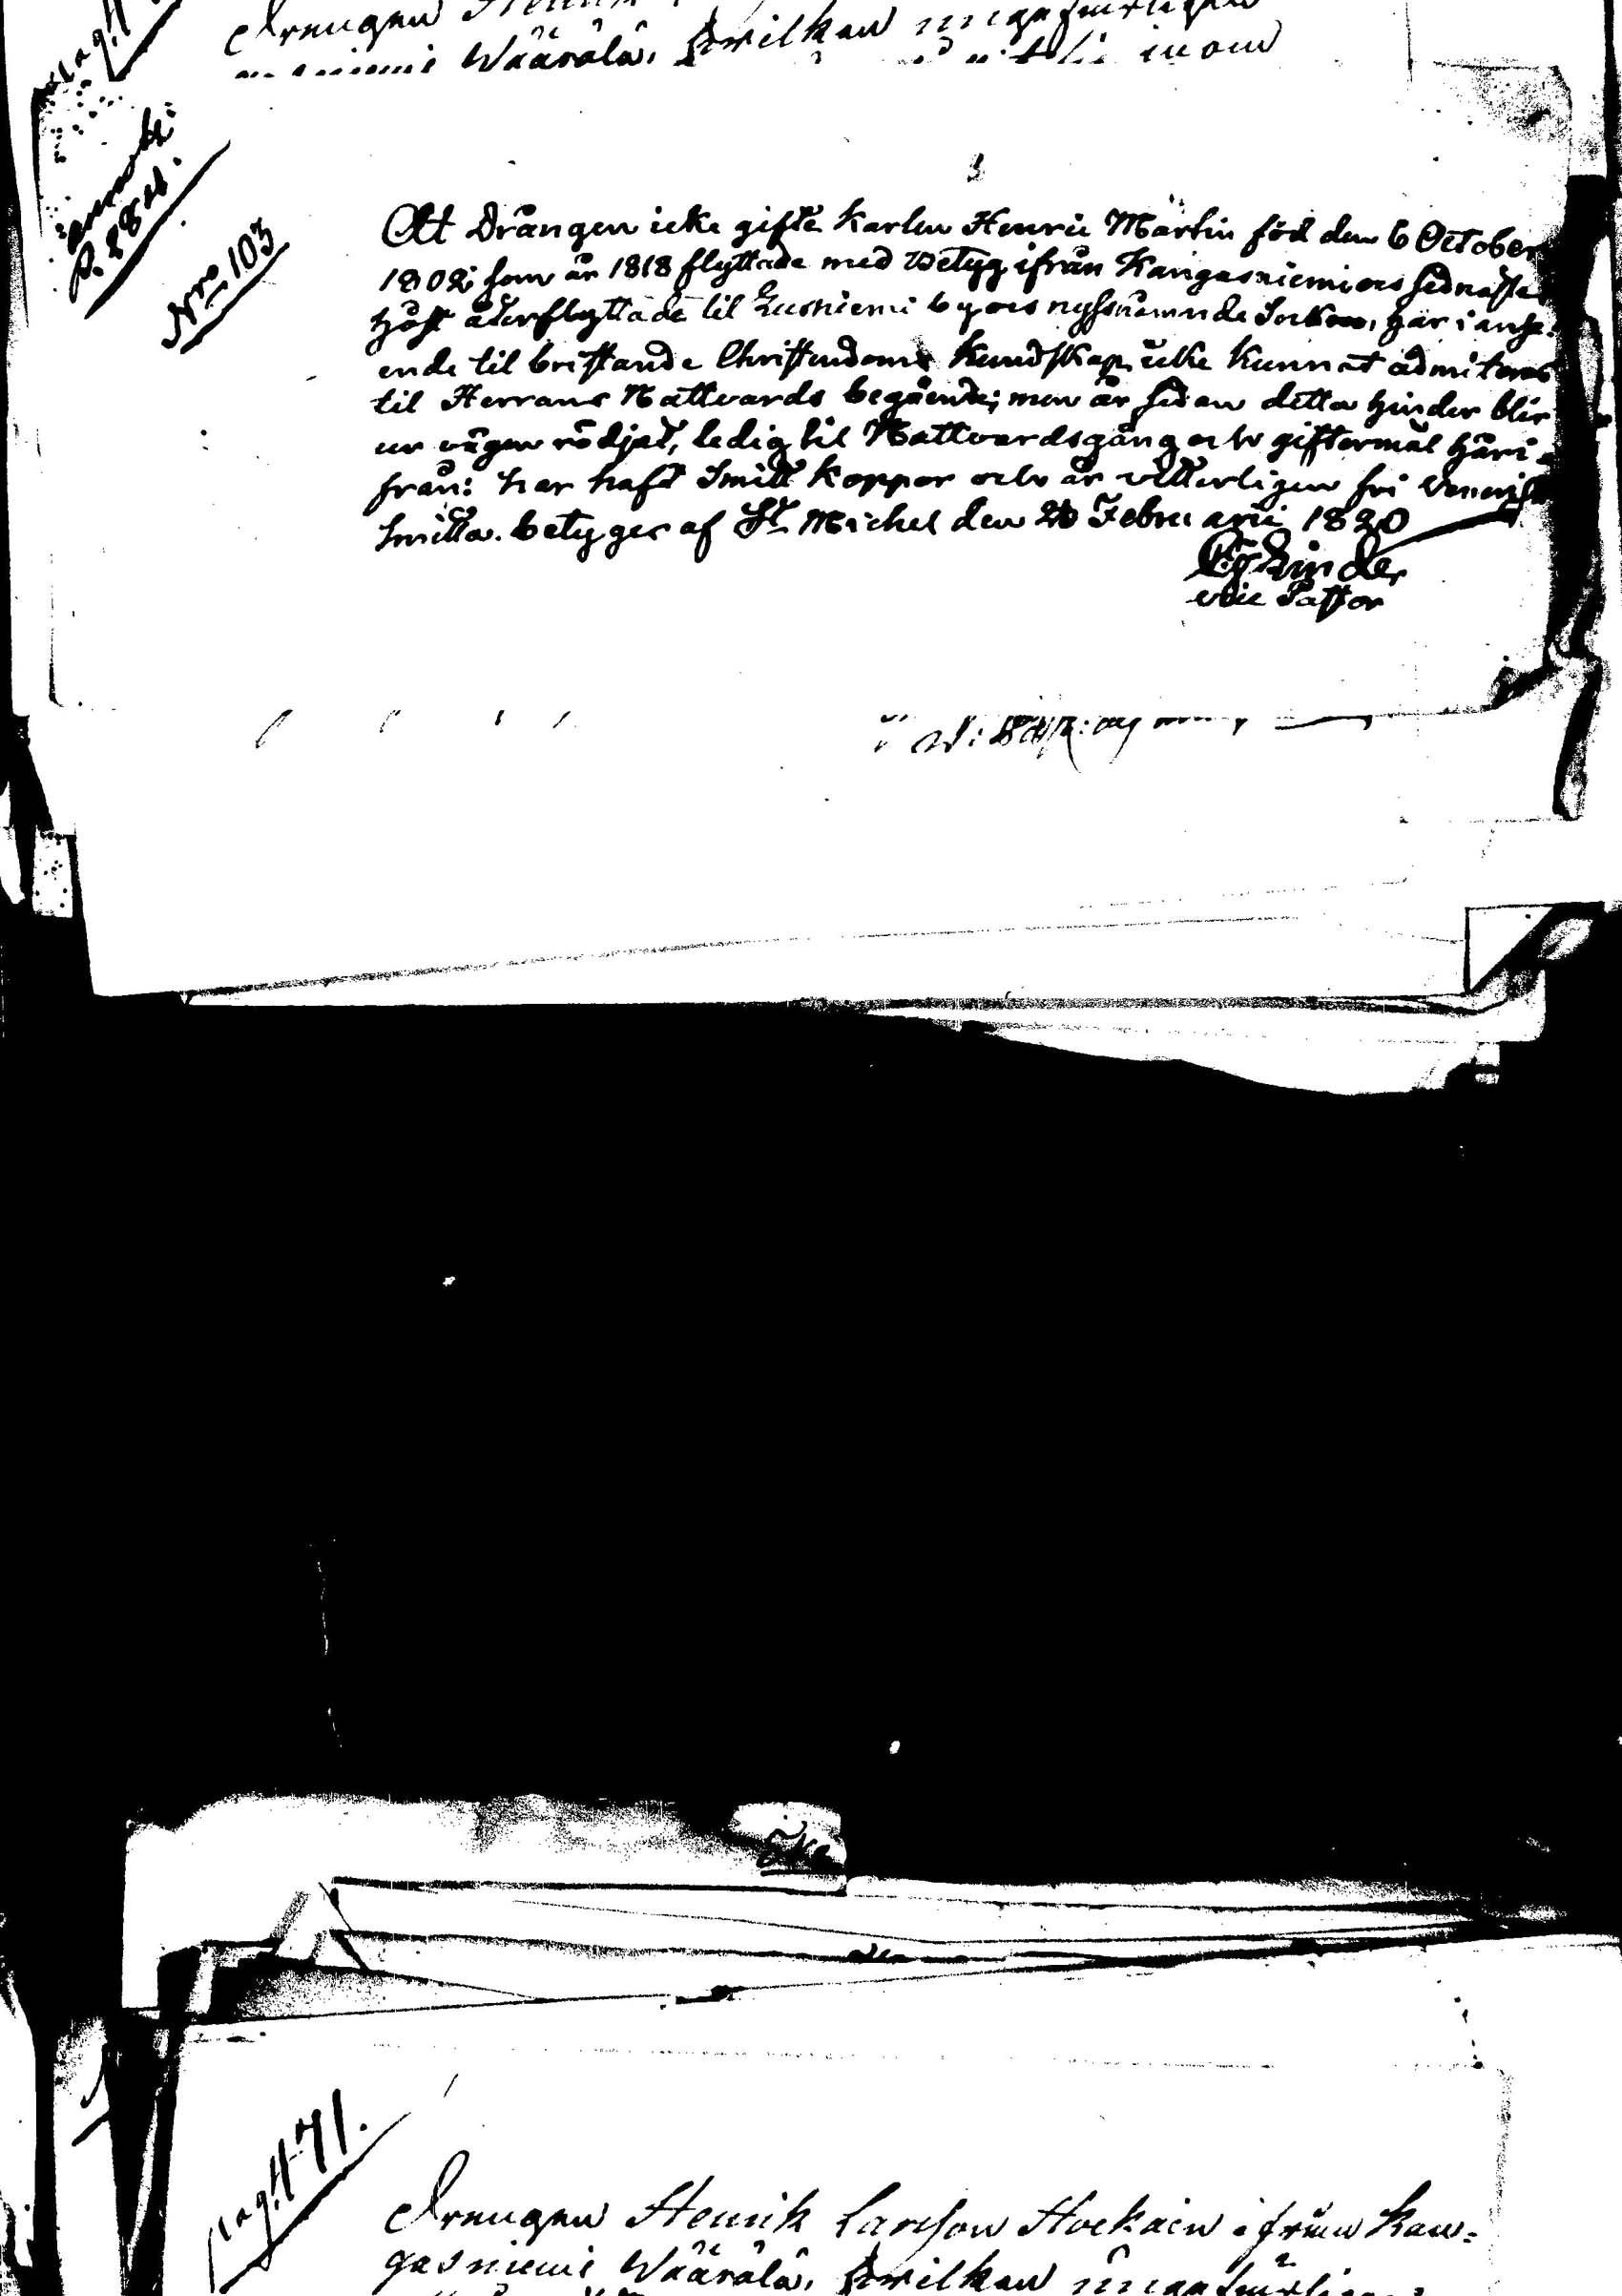 Drengen
Wäärälä, hvilken
inom
p. 884.
Nro 103
Att Drängen icke gifte Karlen Henric Martin född den 6 October
1802; som år 1818 flyttade med Betyg ifrån Kangasniemi och sednaste
Höst återflyttade til Lusniemi by och nyssnämnde Sockn, har i anse-
ende til bristande Christendoms Kundskap icke kunnat admiteras
til Herrans Nattvards begående; men är sedan detta hinder blir
ur vägen rödjat, ledig til Nattvardsgång och giftermål häri-
från: har haft Smitt koppor och är vetterligen fri Venerisk
Smitta. betyges af St Michel den 20 Februarii 1820
vice Pastor
pag. 471.
Drengen Henrik Larsson Hockain ifrån Kan-
gasniemi Wäärälä, hvilken